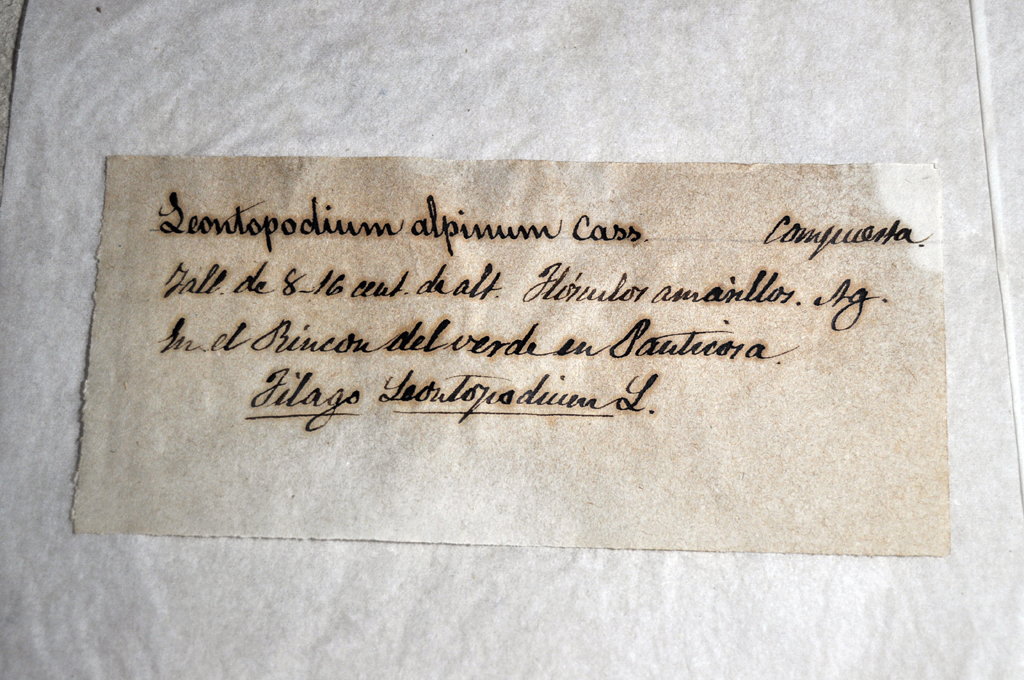 Leontopodium alpinum Cass. Compuesta.
Tall. de 8-16 cent. de alt. Flósculos amarillos. Ag.
En el Rincon del verde en Panticosa
Filago Leontopodium L.